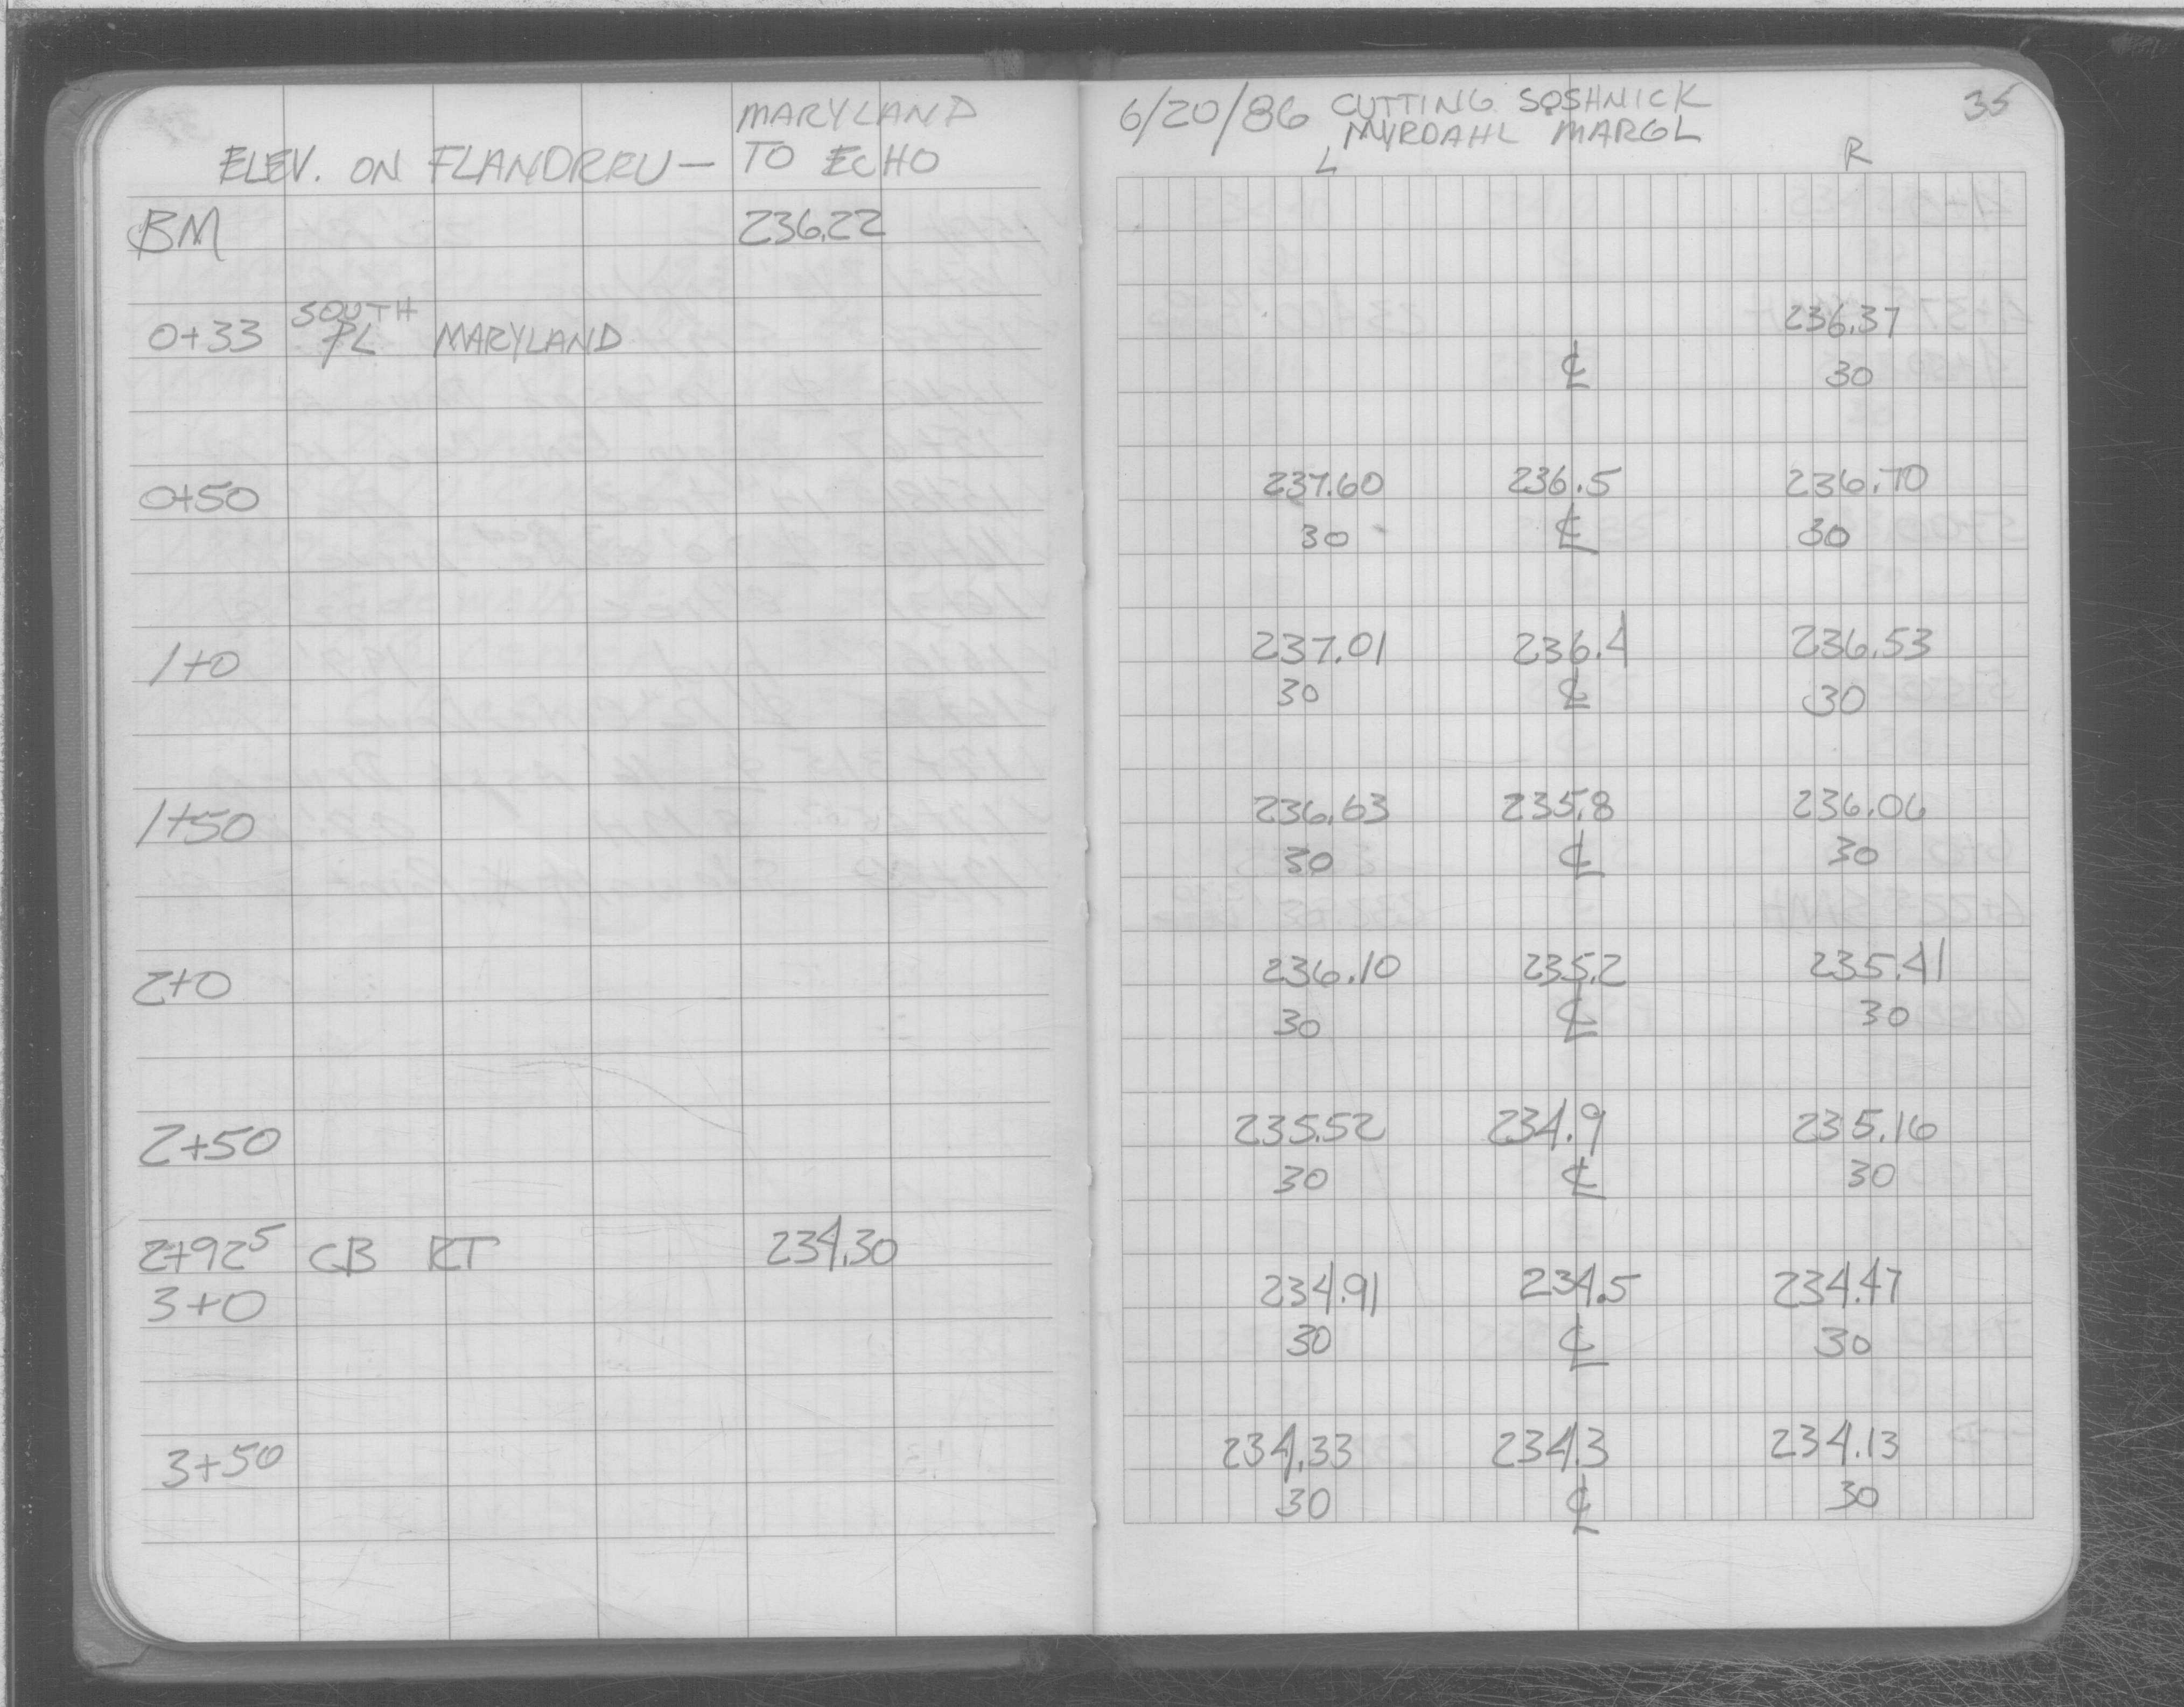 MARYLAND
ELEV. ON FLANDREU — TO ECHO
BM 236.22
0+33 SOUTH PL MARYLAND
0+50
1+0
1+50
2+0
2+50
2+92⁵ CB RT 234.30
3+0
3+50
6/20/86 CUTTING SOSHNICK 35
MYRDAHL MARGL
L R
236.37
℄ 30
237.60 236.5 236.70
30 ℄ 30
237.01 236.4 236.53
30 ℄ 30
236.63 235.8 236.06
30 ℄ 30
236.10 235.2 235.41
30 ℄ 30
235.52 234.9 235.16
30 ℄ 30
234.91 234.5 234.47
30 ℄ 30
234.33 234.3 234.13
30 ℄ 30